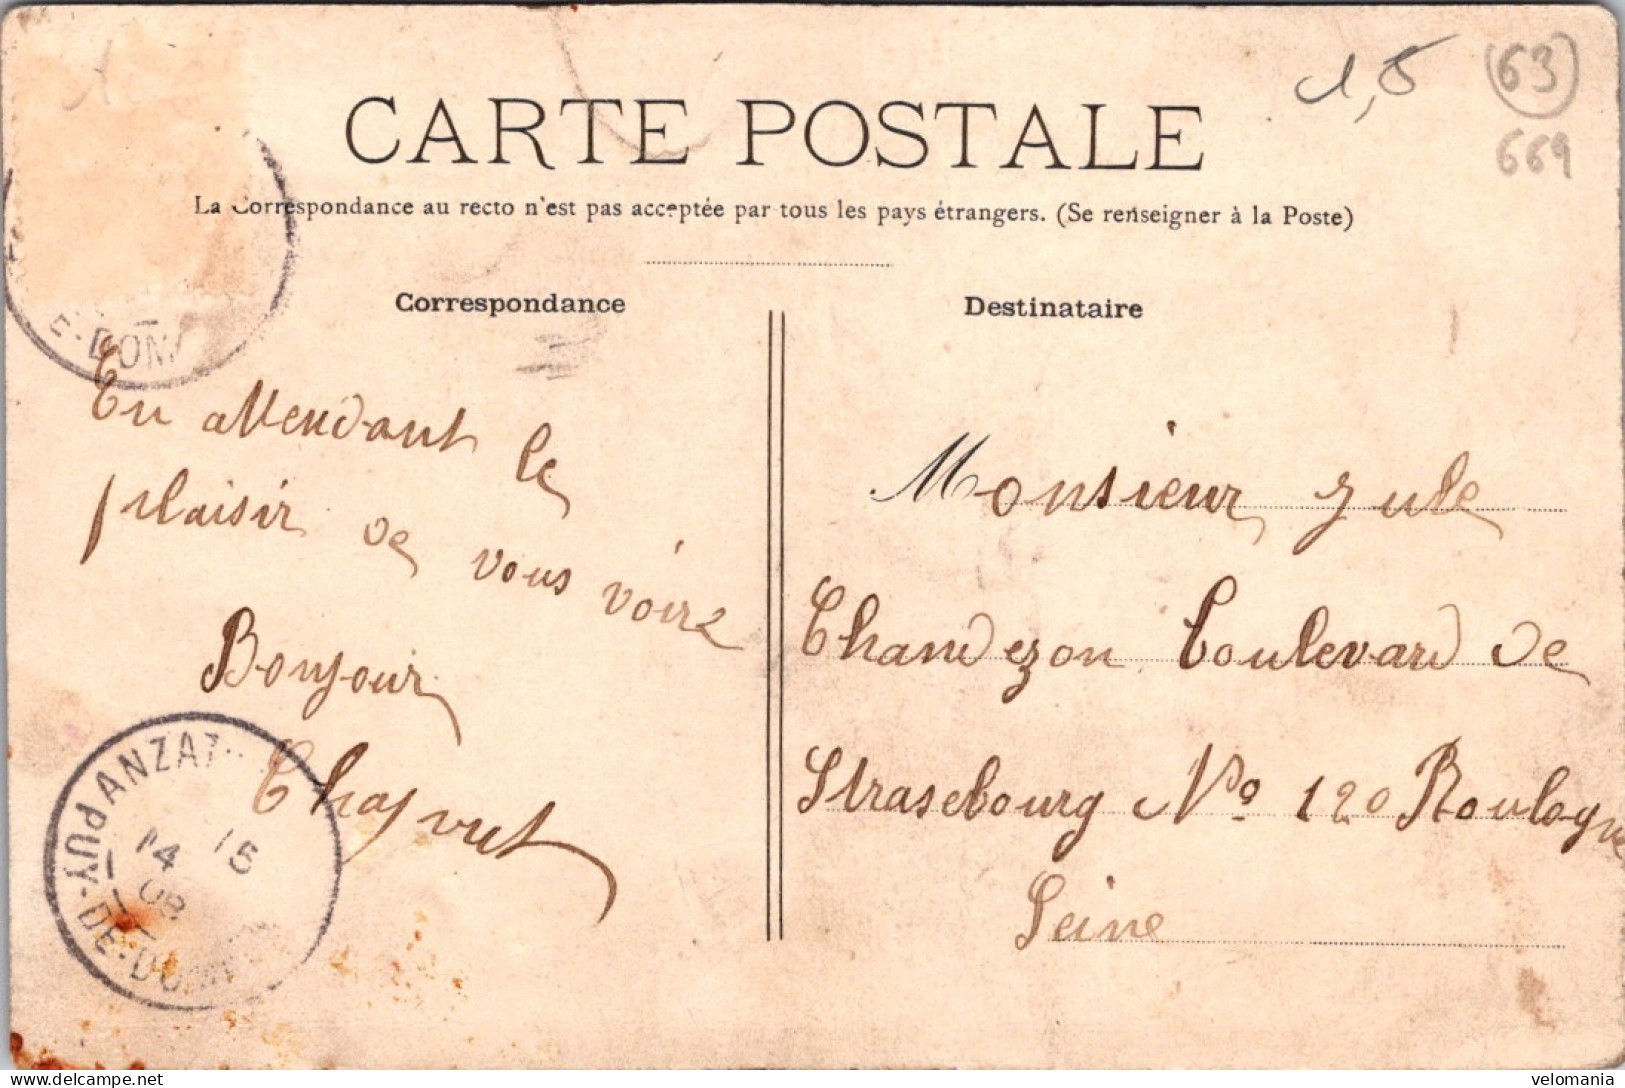 1,5
63
669
CARTE POSTALE
La Correspondance au recto n'est pas acceptée par tous les pays étrangers. (Se renseigner à la Poste)
Correspondance
Destinataire
E-DOM
En attendant le
plaisir de vous voire
Bonjour
Monsieur Jule
Chandezon Boulevard de
Strasebourg No 120 Boulogne
Seine
ANZAT
PUY-DE-DOM
15
14
08
delcampe.net
velomania